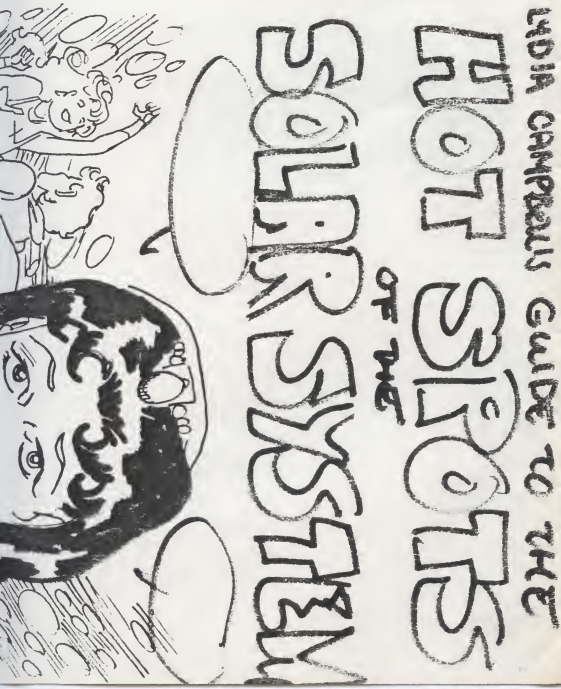 LYDIA CAMPBELLS GUIDE TO THE
HOT SPOTS
OF THE
SOLAR SYSTEM